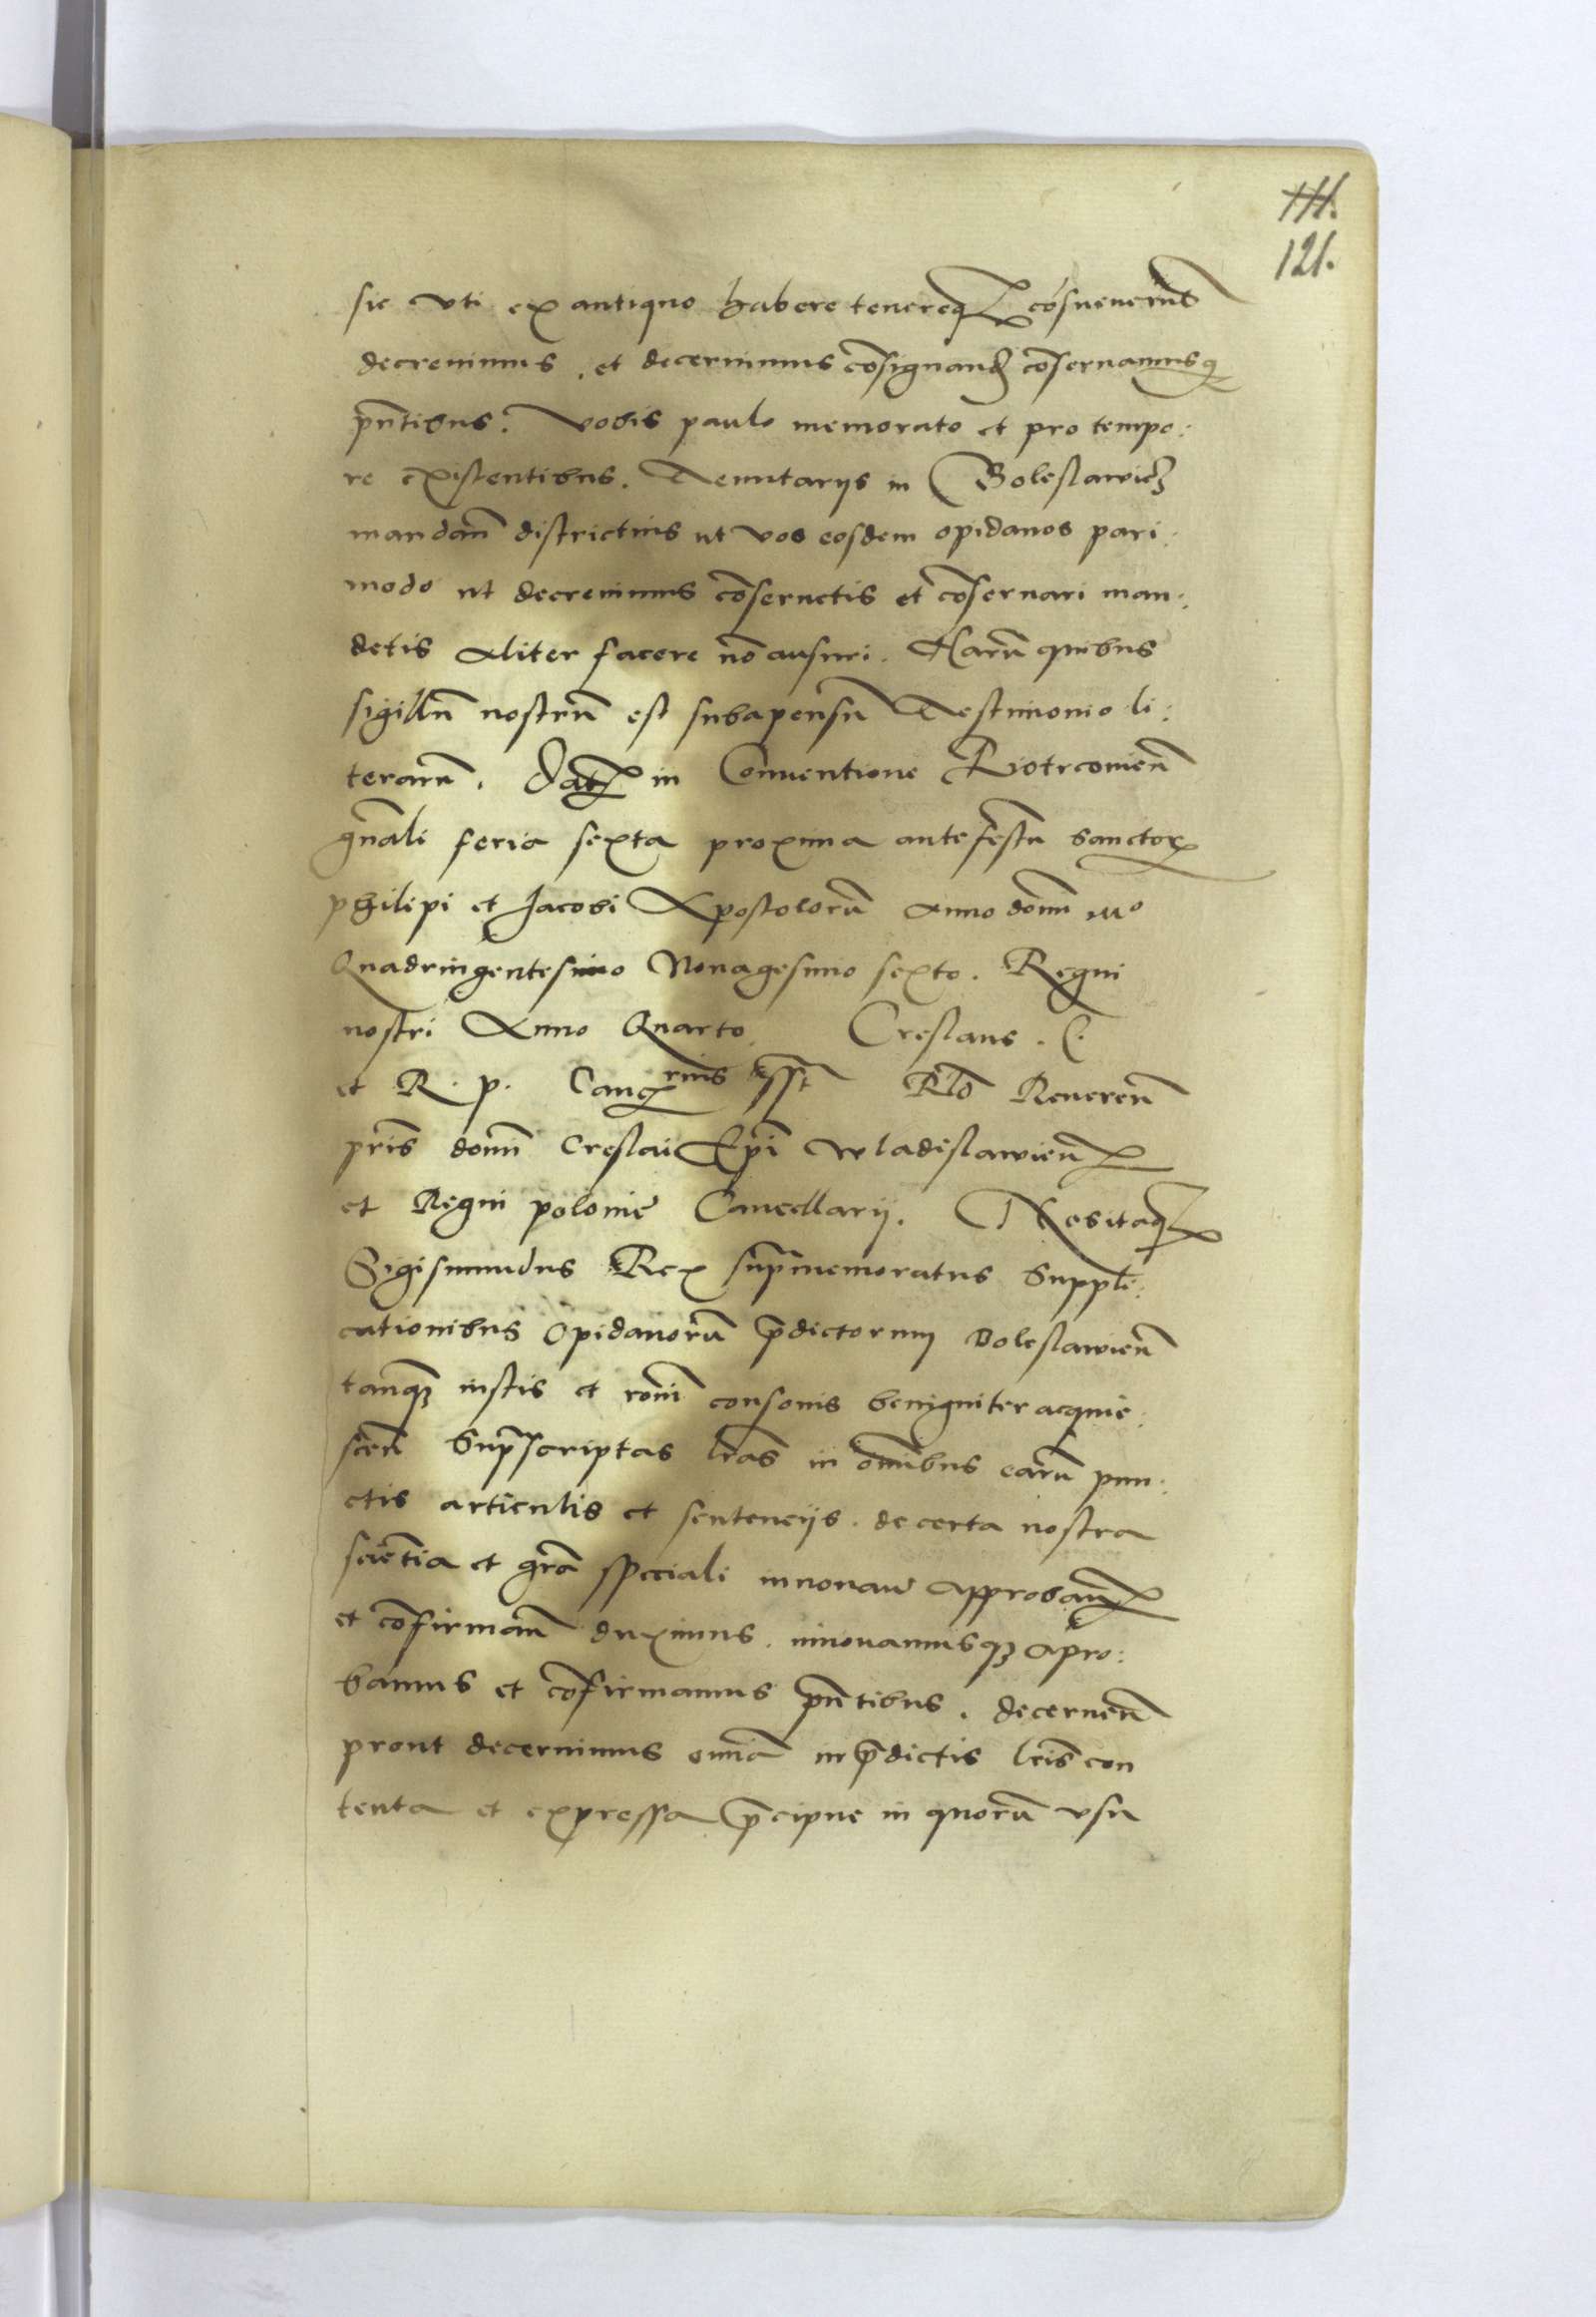 111.
121.
sic vti ex antiquo habere tenereq̃ cõsueuerũt
decreuimus . et decernimus cõsignandʒ cõseruamusqʒ
pñtibus . Vobis paulo memorato et pro tempo:
re existentibus . Tenutarijs in Boleslawiecʒ
mandañ districtius ut vos eosdem opidanos pari:
modo ut decreuimus cõseruetis et cõseruari man:
detis Aliter facere nõ ausuri . Harũ quibus
sigillũ nostrũ est subapensũ Testimonio li:
terarũ . Dat̃ in Conuentione Piotrcouieñ
gñali feria sexta proxima ante festũ sanctorꝝ
philipi et Jacobi Apostolorũ Anno domĩ Mo
Quadringentesimo Nonagesimo sexto . Regni
nostri Anno Quarto . Creslaus . E.
et R. p. Cancꝝrius sst̃ Rlõ Reuereñ
pris̃ domĩ Creslai Epĩ Wladislawieñ
et Regni polonie Cancellarij . Nositaqʒ
Sigismundus Rex supramemoratus Suppli:
cationibus Opidanorũ p̃dictorum Boleslawieñ
tanqʒ iustis et roñi consonis benigniter acquie:
sceñ Supra scriptas lrãs in oñibus earũ pun:
ctis articulis et sentencijs . de certa nostra
sciẽntia et grã speciali innouañ Approbañ
et cõfirmañ duximus . innouamusqʒ Apro:
bamus et cõfirmamus pñtibus . decerneñ
prout decernimus omĩa in p̃dictis lr̃is con
tenta et expressa p̃cipue in quorũ vsu